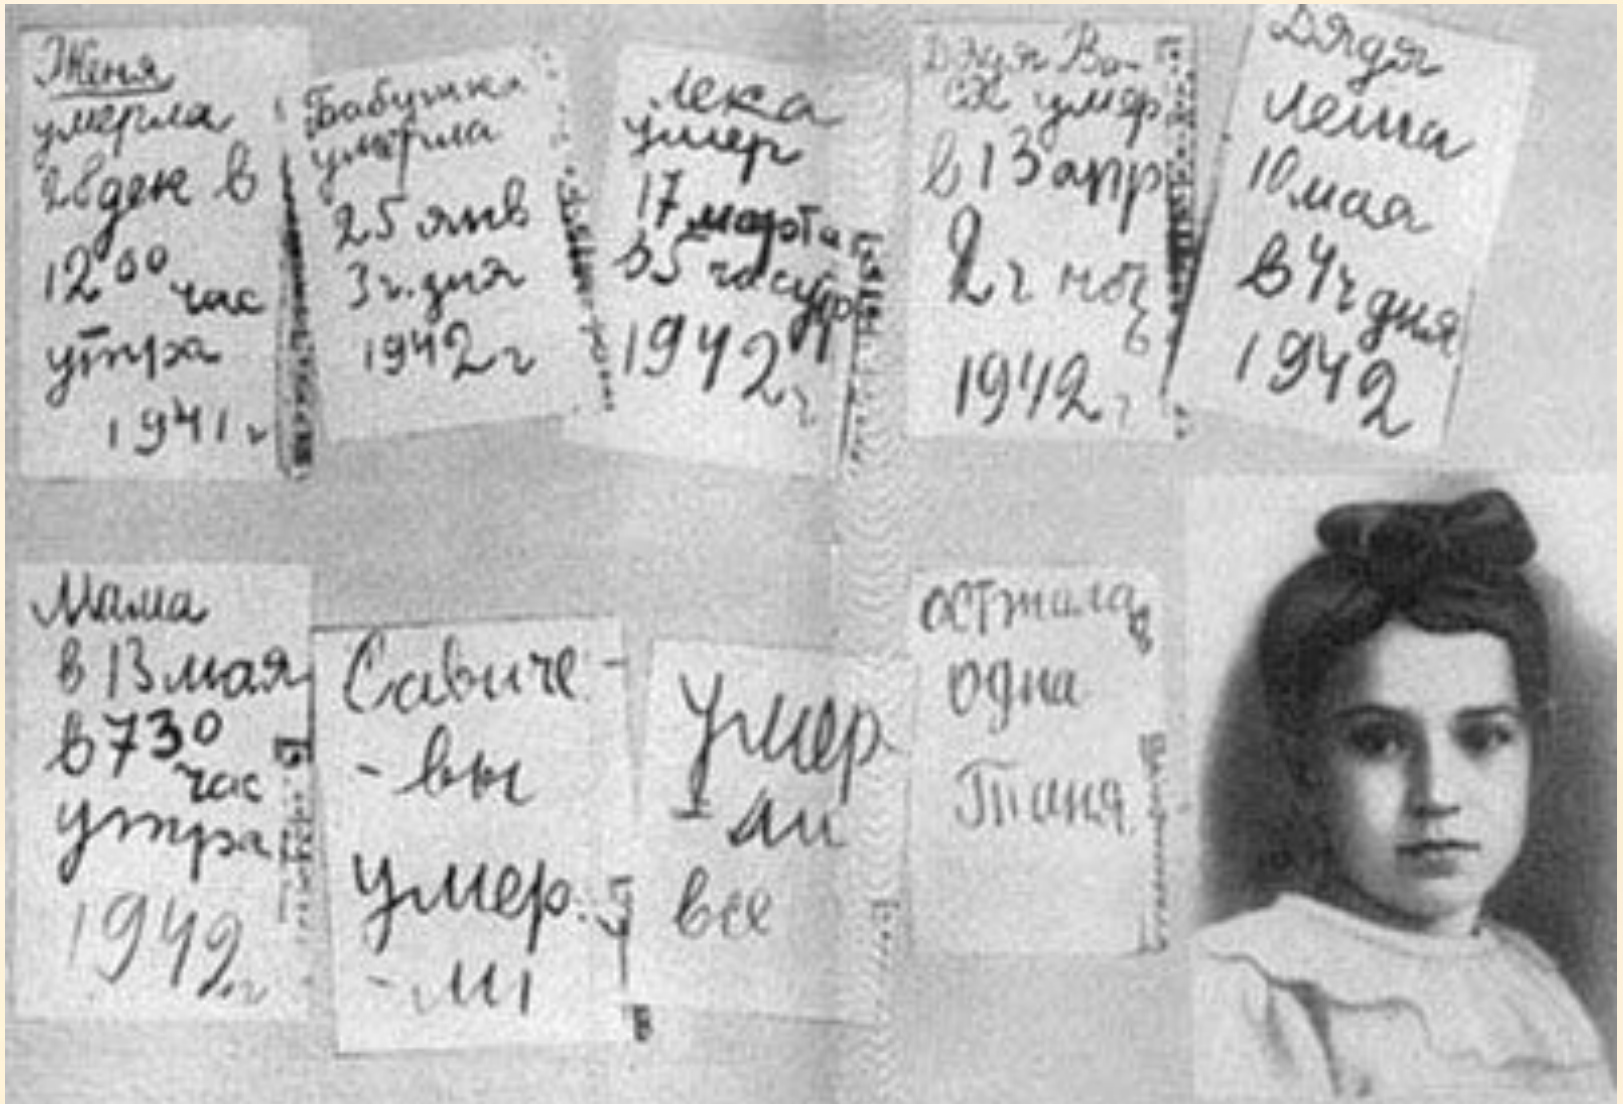 Женя
умерла
28 дек в
12 00
час
утра
1941 г
Бабушка
умерла
25 янв
3 ч. дня
1942 г
Лека
умер
17 марта
в 5 час утр
1942 г
Дядя Ва-
ся умер
в 13 апр
2 ч ноч
ь
1942 г
Дядя
Леша
10 мая
в 4 ч дня
1942
Мама
в 13 мая
в 7 30
час
утра
1942 г
Савиче-
-вы
умер.
-ли
Умер
-ли
все
осталась
одна
Таня